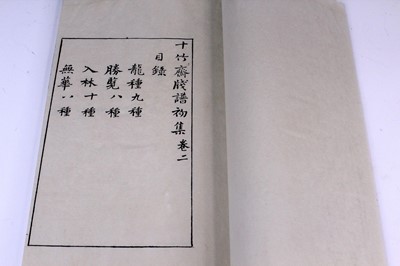 十竹齋牋譜初集卷二
目錄
龍種九種
勝覽八種
入林十種
無華八種